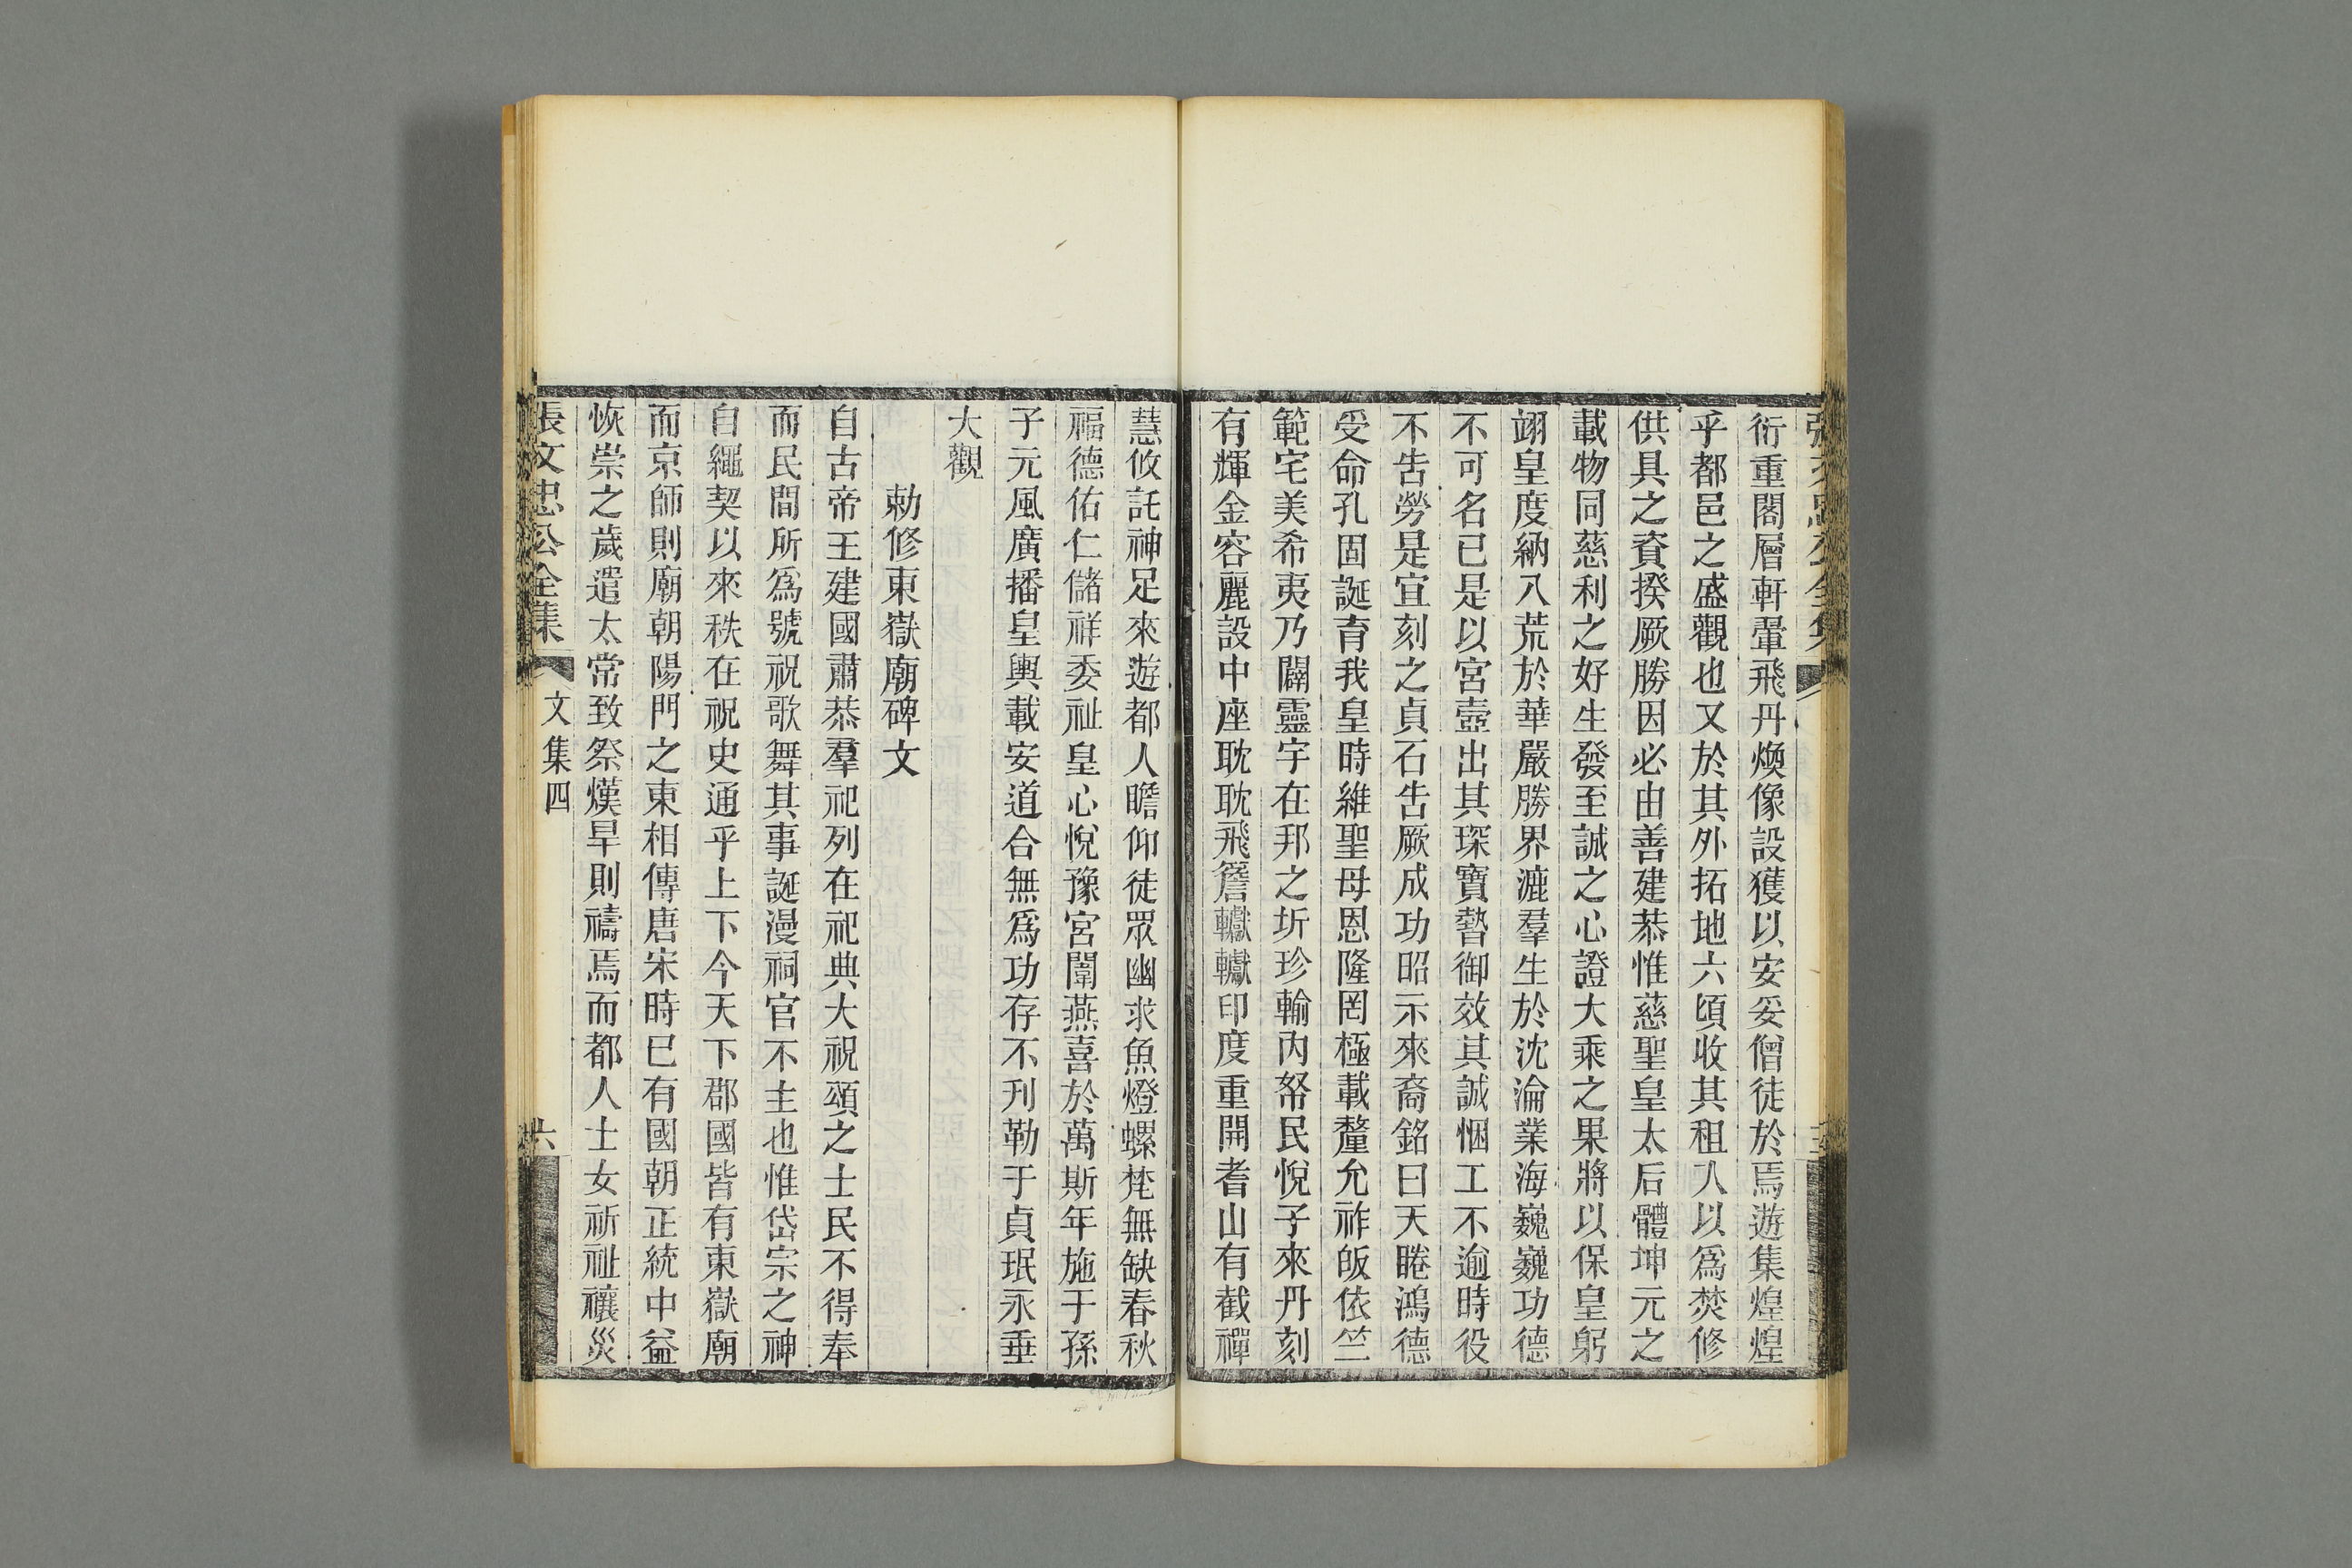 衍重閣層軒翬飛丹煥像設獲以安妥僧徒於焉遊集煌煌
乎都邑之盛觀也又於其外拓地六頃收其租入以爲焚修
供具之資揆厥勝因必由善建恭惟慈聖皇太后體坤元之
載物同慈利之好生發至誠之心證大乘之果將以保皇躬
翊皇度納八荒於華嚴勝界漉羣生於沈淪業海巍巍功德
不可名已是以宮壼出其琛寶暬御效其誠悃工不逾時役
不告勞是宜刻之貞石告厥成功昭示來裔銘曰天睠鴻德
受命孔固誕育我皇時維聖母恩隆罔極載釐允祚皈依竺
範宅美希夷乃闢靈宇在邦之圻珍輸內帑民悅子來丹刻
有輝金容麗設中座耽耽飛簷轥轥印度重開耆山有截禪
慧攸託神足來遊都人瞻仰徒眾幽求魚燈螺梵無缺春秋
福德佑仁儲祥委祉皇心悅豫宮闈燕喜於萬斯年施于孫
子元風廣播皇輿載安道合無爲功存不刊勒于貞珉永垂
大觀
勅修東嶽廟碑文
自古帝王建國肅恭羣祀列在祀典大祝頌之士民不得奉
而民間所爲號祝歌舞其事誕漫祠官不主也惟岱宗之神
自繩契以來秩在祝史通乎上下今天下郡國皆有東嶽廟
而京師則廟朝陽門之東相傳唐宋時已有國朝正統中益
恢崇之歲遣太常致祭熯旱則禱焉而都人士女祈祉禳災
張文忠公全集 文集四 六